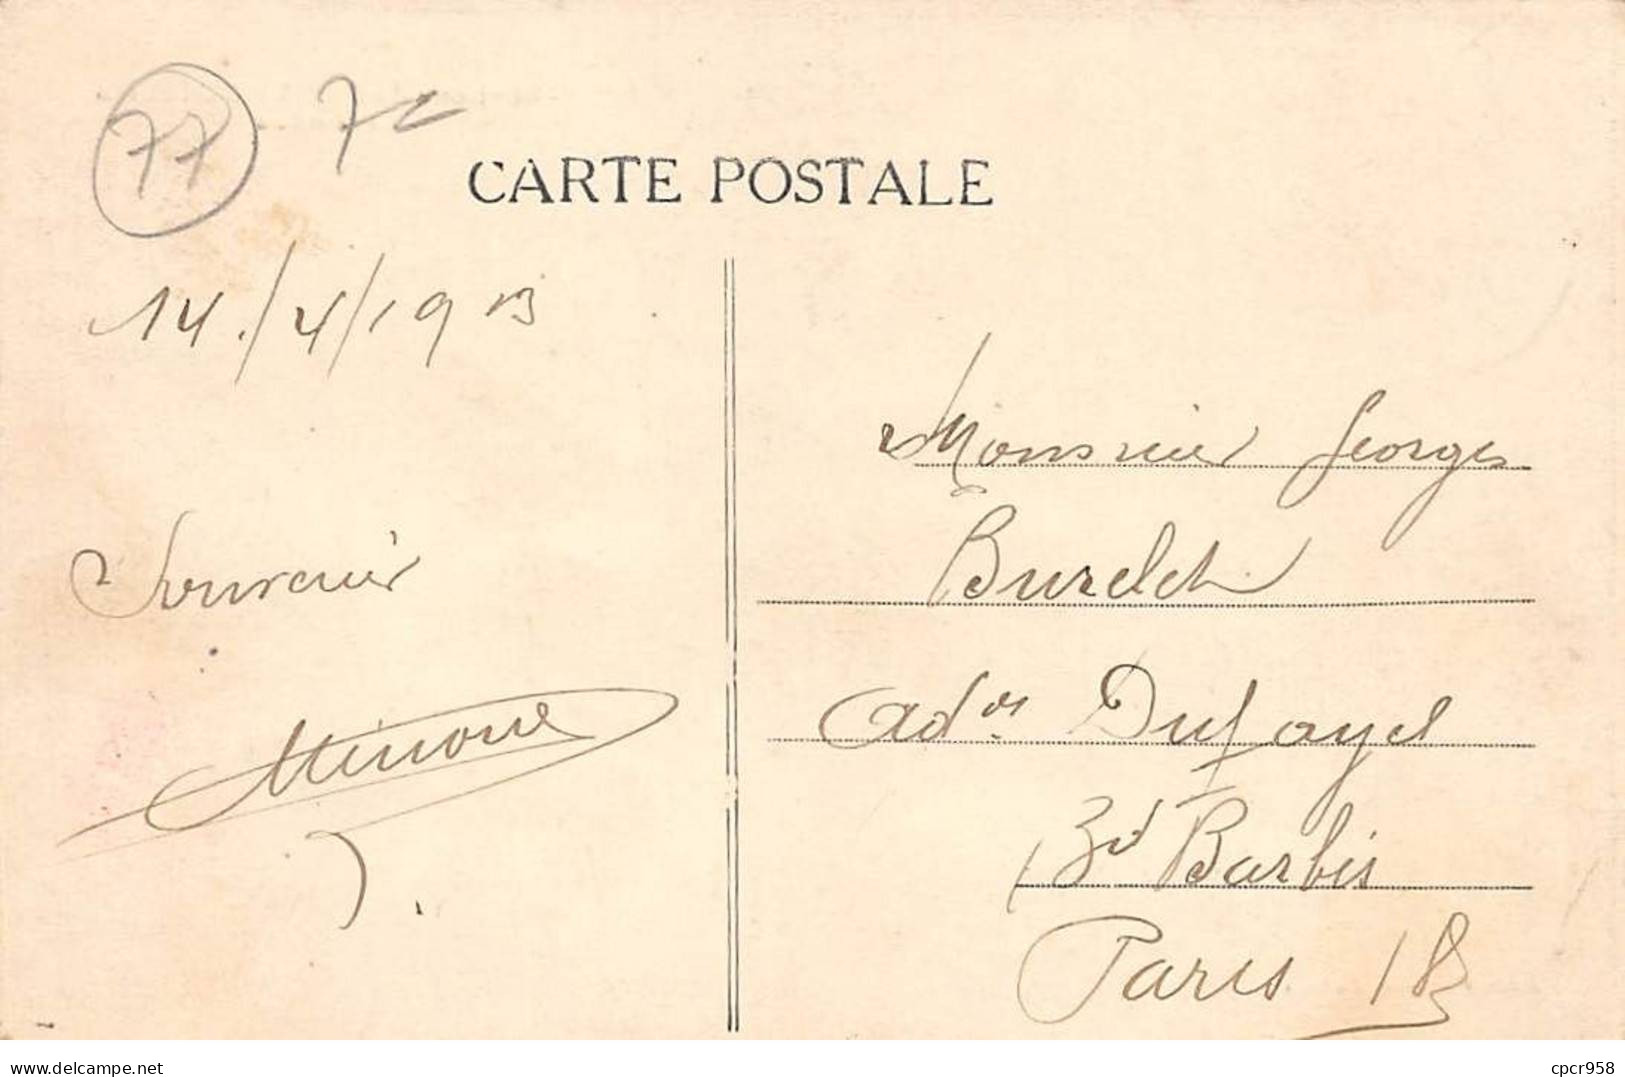 77
CARTE POSTALE
14./4/1913
Souvenir
Monsieur Georges
Adon Dufayel
Bd Barbès
Paris 18
delcampe.net
cpcr958